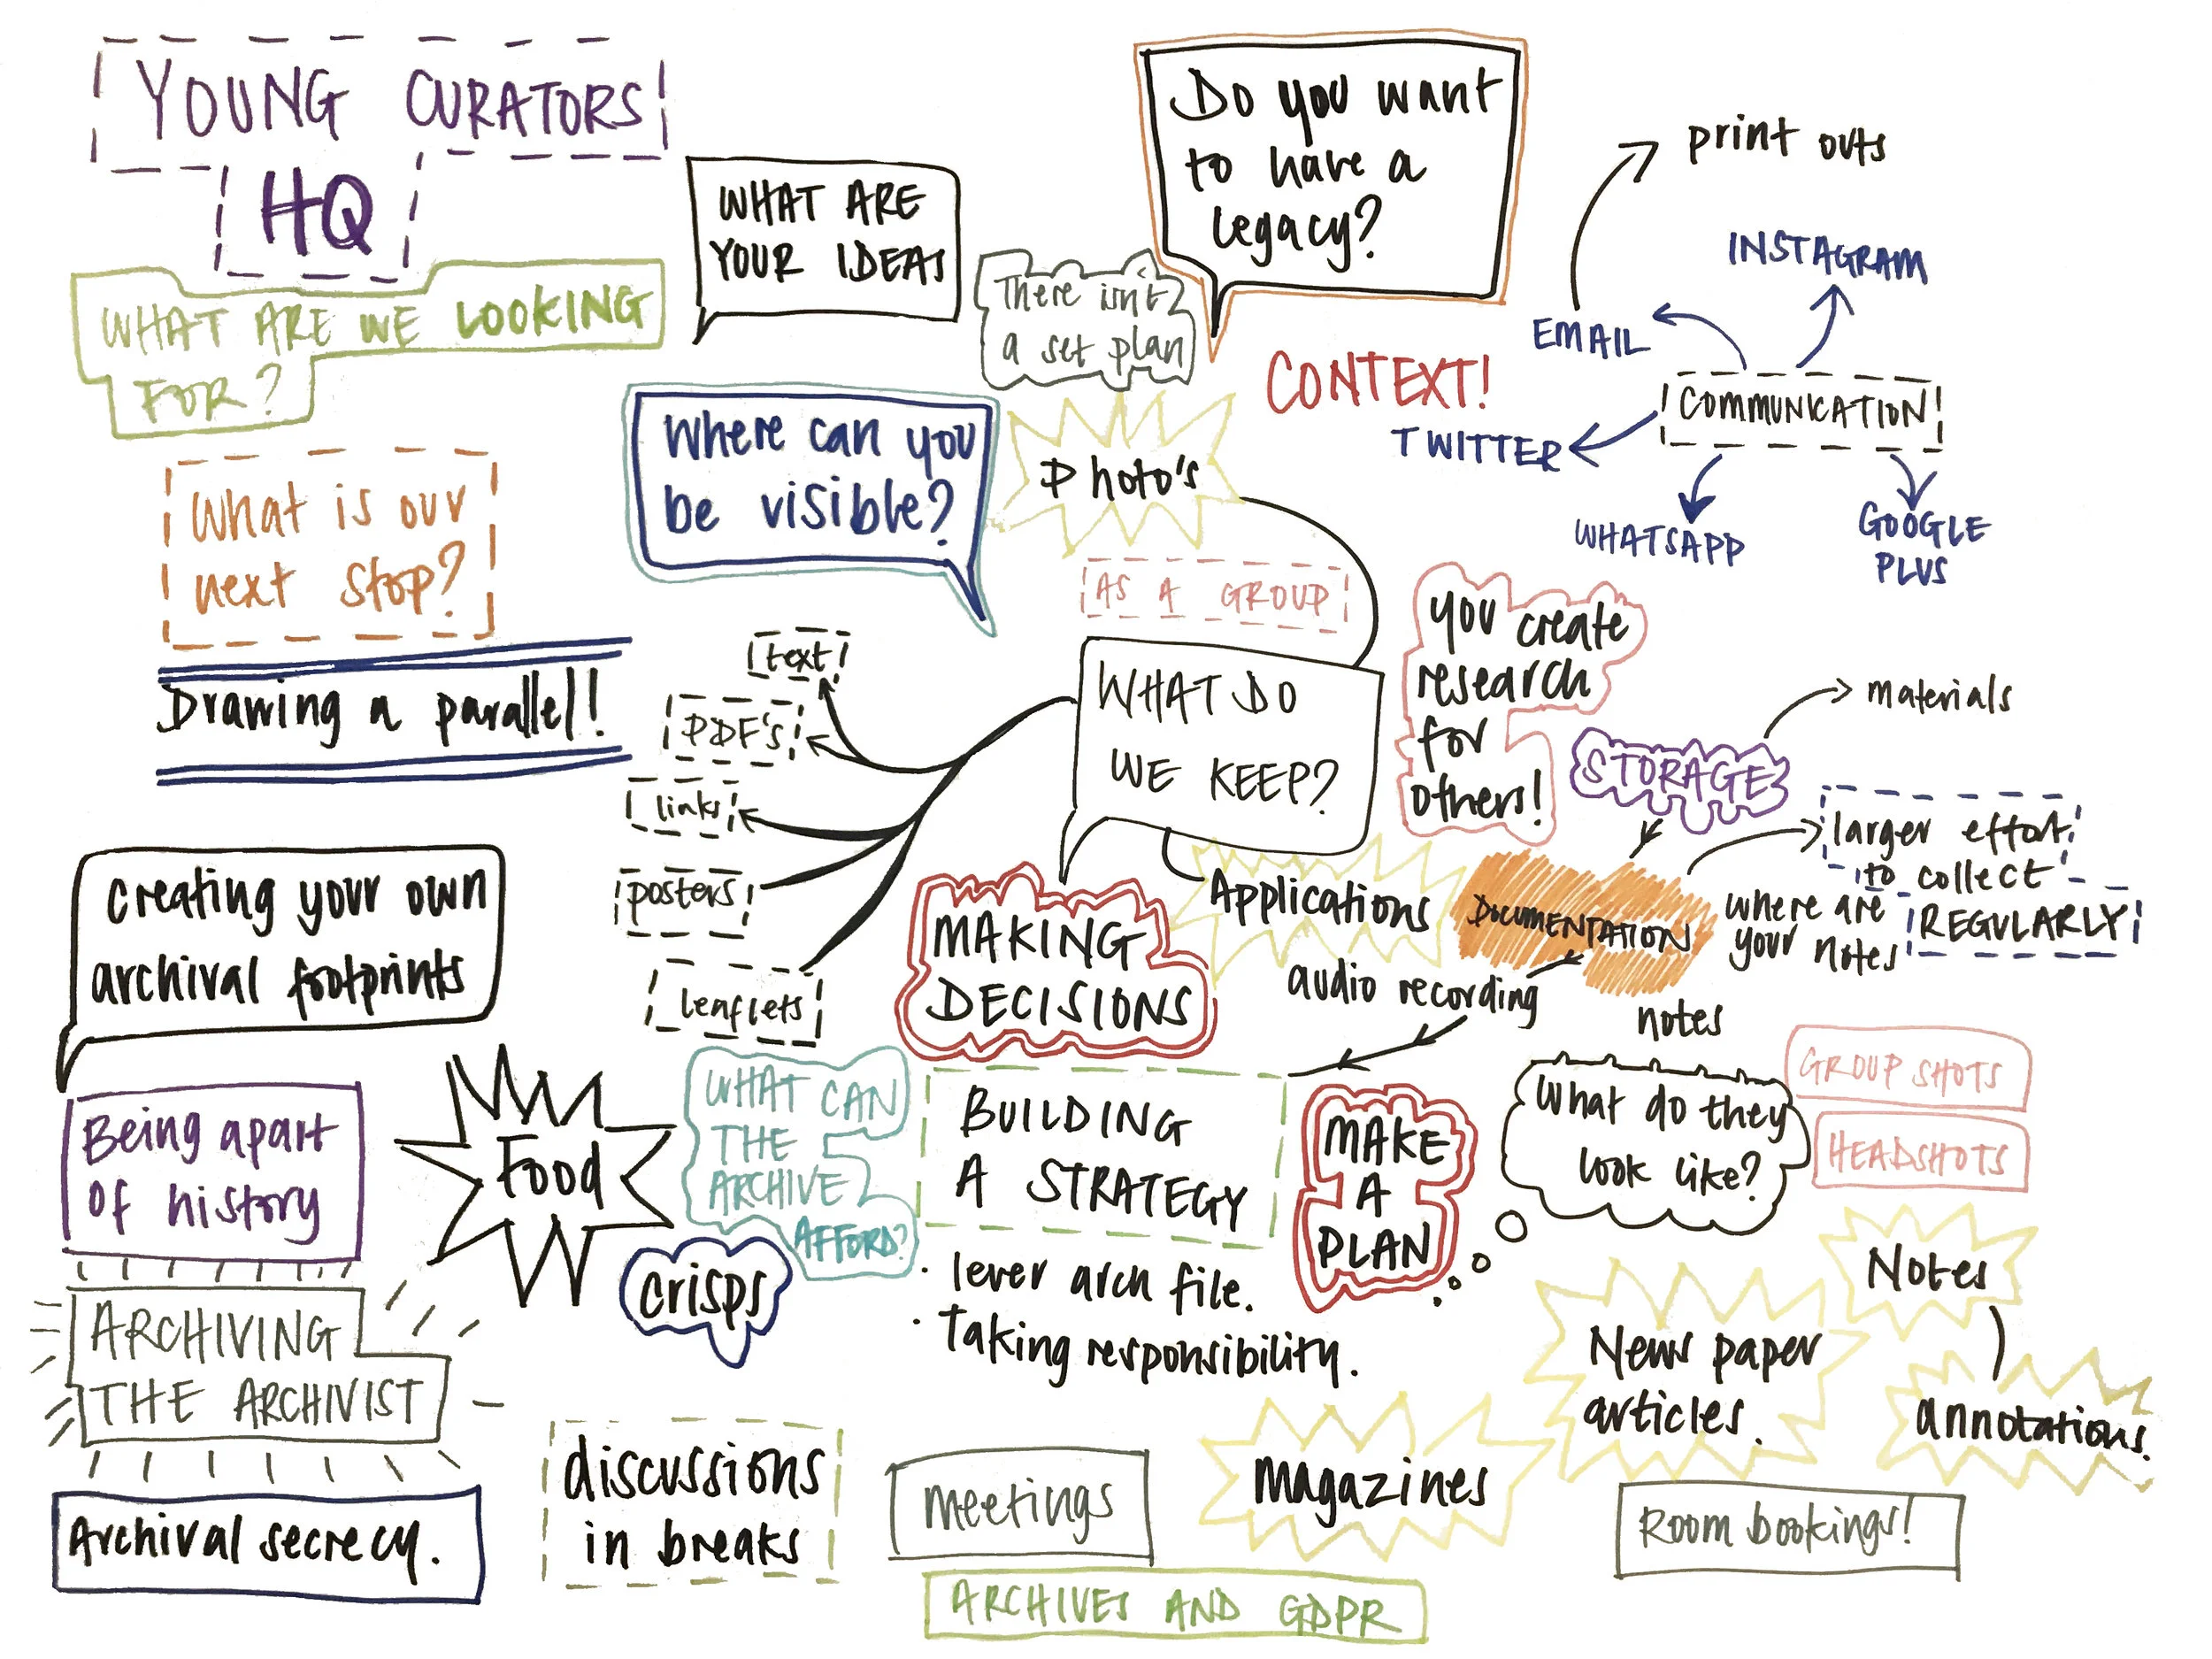 YOUNG CURATORS
HQ
WHAT ARE WE LOOKING
FOR?
WHAT ARE
YOUR IDEAS
There isn't
a set plan
Do you want
to have a
legacy?
print outs
INSTAGRAM
EMAIL
COMMUNICATION
TWITTER
WHATSAPP
GOOGLE
PLUS
CONTEXT!
What is our
next stop?
Where can you
be visible?
Photo's
AS A GROUP
Drawing a parallel!
text
PDF's
links
posters
leaflets
WHAT DO
WE KEEP?
you create
research
for
others!
STORAGE
materials
larger effort
to collect
REGULARLY
where are
your notes
DOCUMENTATION
Applications
audio recording
notes
creating your own
archival footprints
MAKING
DECISIONS
Being apart
of history
Food
WHAT CAN
THE
ARCHIVE
AFFORD?
crisps
BUILDING
A STRATEGY
· lever arch file.
· Taking responsibility.
MAKE
A
PLAN
What do they
look like?
GROUP SHOTS
HEADSHOTS
Notes
News paper
articles.
annotations.
ARCHIVING
THE ARCHIVIST
Archival secrecy.
discussions
in breaks
meetings
magazines
Room bookings!
ARCHIVES AND GDPR